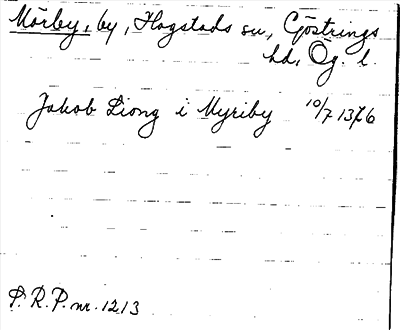 Mörby, by, Hogstads sn, Göstrings
hd, Ög. l.
Jakob Liong i Myriby 10/7 1376
P.R.P. nr. 1213